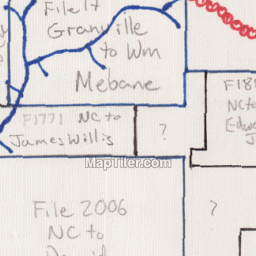 File 17
Granville
to Wm
Mebane
F1771 NC to
James Willis
?
F18
NC to
Edw
J
MapTiler.com
File 2006
NC to
David
?